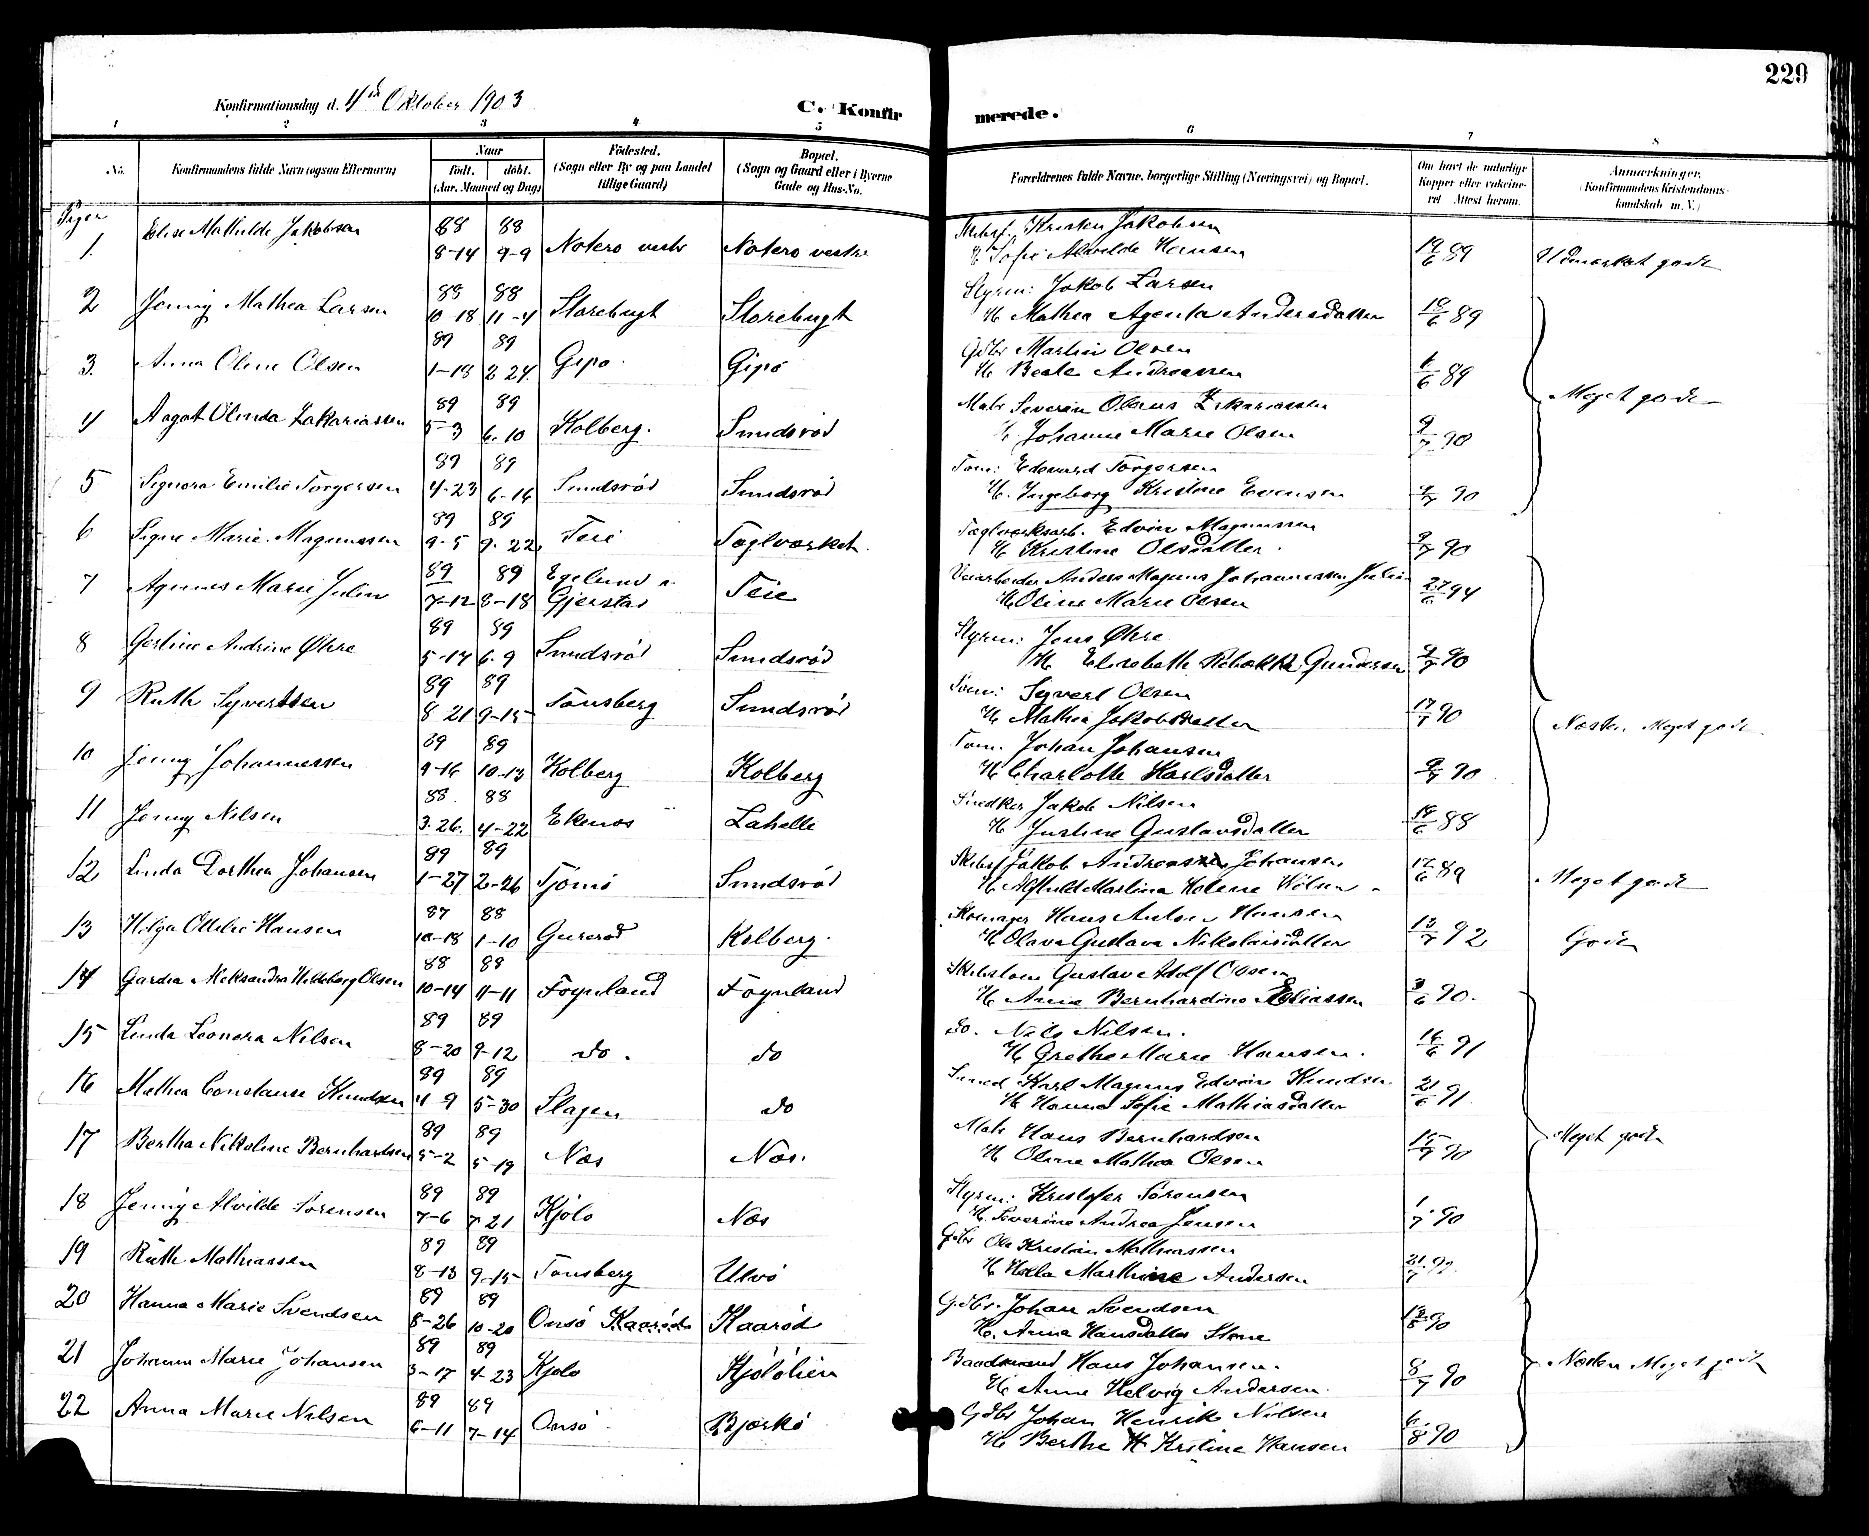 229
Konfirmationsdag d. 4de Oktober 1903
C. Konfirmerede.
1 2 3 4 5 6 7 8
No.
Konfirmandens fulde Navn (ogsaa Efternavn)
Naar
født. døbt.
(Aar, Maaned og Dag)
Fødested.
(Sogn eller By og paa Landet
tillige Gaard)
Bopæl.
(Sogn og Gaard eller i Byerne
Gade og Hus-No.
Forældrenes fulde Navne, borgerlige Stilling (Næringsvei) og Bopæl.
Om havt de naturlige
Kopper eller vakcine-
ret. Attest herom.
Anmærkninger.
(Konfirmandens Kristendoms-
kundskab m. V.)
Piger
1. Elise Mathilde Jakobsen 88 8-14 88 9-9 Nøterø vestre Nøterø vestre Kristen Jakobsen
H Sofie Alvilde Hansen 19/6 89 Udmærket godt
2 Jenny Mathea Larsen 88 10-18 88 11-4 Storebugt Storebugt Styrm: Jakob Larsen
H Mathea Agenta Andersdatter 19/6 89
3. Anna Oline Olsen 89 1-18 89 2 24. Gipø Gipø Gdbr Martin Olsen
H Beate Andreassen 1/6 89 Meget godt
4 Aagot Olinda Zakariassen 89 5-3 89 6.10 Kolberg. Sundsrød Matr Severin Olaus Zakariassen
H. Johanne Marie Olsen 9/7 90
5 Signora Emilie Torgersen 89 4-23 89 6-16 Sundsrød Sundsrød Tøm: Edvard Torgersen
H. Ingeborg Kristine Evensen 9/7 90
6 Signe Marie Magnussen 89 9-5 89 9-22 Teie Teglværket. Teglværksarb. Edvin Magnussen
H Kristine Olsdatter. 9/7 90
7 Agnes Marie Julin 89 7-12 89 8-18 Egelund i
Gjerstad Teie Veiarbeider Anders Magnus Johannessen Julin
H Oline Marie Olsen 27/6 94
8 Gerline Andrine Øhre 89 5-14 89 6.9 Sundsrød Sundsrød Styrm: Jens Øhre
H Elisabeth Rebekka Gundersen 9/7 90
9 Ruth Syvertsen 89 8 21 89 9-15 Tønsberg Sundsrød Tøm: Syvert Olsen
H Mathea Jakobsdatter 17/7 90 Næsten Meget godt
10 Jenny Johannessen 89 9-16 89 10-13 Kolberg Kolberg Tøm. Johan Johansen
H Charlotte Karlsdatter 9/7 90
11 Jenny Nilsen 88. 3.26. 88 4-22 Ekenes Lahelle Snedker Jakob Nilsen
H Justine Gustavsdatter 18/6 88
12 Linda Dorthea Johansen 89 1-27 89 2-26 Tjømø Sundsrød Skibsf Jakob Andreas Johansen
H Martina Helene 17/6 89 Meget godt
13 Helga Ottilie Hansen 87 10-18 88 1-10 Gurerød Kolberg. Skomager Hans Anton Hansen
H Olava Gustava Nikolaisdatter 13/7 92 Godt
14 Gardia Aleksandra Hildeborg Olsen 88 10-14 88 11-11 Føynland Føynland Gustav Adolf Olsen
H Anna Bernhardine Eliassen 3/6 90.
15 Linda Leonora Nilsen 89 8-20 89 9-12 do. do do. Nils Nilsen.
H Grethe Marie Hansen. 16/6 91
16 Mathea Constanse Knudsen 89 4 9 89 5-30 Slagen do Smed Karl Magnus Edvin Knudsen
H Hanna Sofie Mathiasdatter 21/6 91.
17 Bertha Nikoline Bernhardsen 89 5-2 89 5-19 Næs Næs. Matr Hans Bernhardsen
H Oline Mathea Olsen 15/7 90 Meget godt
18 Jenny Alvilde Sørensen 89 7-6 89 7-21 Kjølø Næs Styrm: Kristofer Sørensen
H. Severine Andrea Jensen 1/7 90
19 Ruth Mathiassen 89 8-13 89 9-15 Tønsberg Ulvø Gdbr Ole Kristian Mathiassen
H Hella Marthine Andersen
20 Hanna Marie Svendsen 89 8-26 89 10-20 Onsø Kaarød Kaarød Gdbr. Johan Svendsen
H. Anna Hansdatter Stene 18/8 90
21 Johanne Marie Johansen 89 3-17 89 4-23 Kjølø Kjølølien Baadsmand Hans Johansen.
H Anne Helvig Andersen. 8/7 90 Næsten Meget godt
22 Anna Marie Nilsen 89 6-11 89 7-14 Onsø Bjerkø Gdbr Johan Henrik Nilsen
H Berthe Kristine Hansen 6/8 90